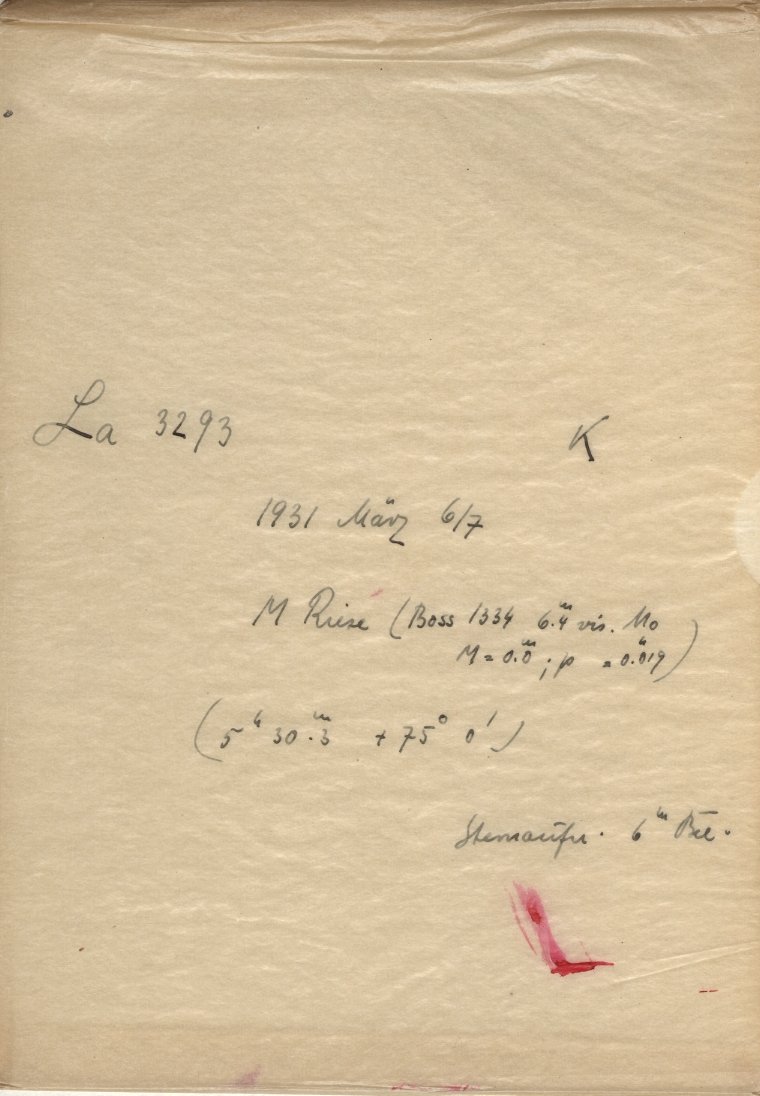 La 3293 K
1931 März 6/7
M Riese (Boss 1334 6.ᵐ4 vis. Mo
M = 0.ᵐ0 ; p = 0."019)
(5ʰ 30.ᵐ3 + 75° 0')
Sternaufn. 6ᵐ Bel.